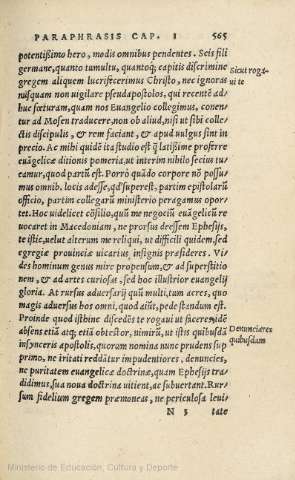 PARAPHRASIS CAP. I 565
potentißimo hero, modis omnibus pendentes. Scis fili
germane, quanto tumultu, quantoq; capitis discrimine
gregem aliquem lucrifecerimus Christo, nec ignoras
nusquam non uigilare pseudapostolos, qui recentē ad-
huc fœturam, quam nos Euangelio collegimus, conen-
tur ad Mosen traducere, non ob aliud, nisi ut sibi colle-
ctis discipulis, & rem faciant, & apud uulgus sint in
precio. Ac mihi quidē ita studio est q̃ latißime proferre
euāgelicæ ditionis pomeria, ut interim nihilo secius tu-
eamur, quod partū est. Porrò quādo corpore nō possu-
mus omnib. locis adesse, qd' superest, partim epistolarū
officio, partim collegarū ministerio peragamus opor-
tet. Hoc uidelicet cōsilio, quū me negociū euāgelicū re
uocaret in Macedoniam, ne prorsus deessem Ephesijs,
te istic, uelut alterum me reliqui, ut difficili quidem, sed
egregiæ prouinciæ uicarius, insignis præsideres. Vi-
des hominum genus mire propensum, & ad superstitio
nem, & ad artes curiosas, sed hoc illustrior euangelij
gloria. At rursus aduersarij quū multi, tam acres, quo
magis aduersus hos omni, quod aiūt, pede standum est.
Proinde quod istinc discedēs te rogaui ut faceres, idē
absens etiā atq; etiā obtestor, nimirū, ut istis quibusdā
insynceris apostolis, quorum nomina nunc prudens sup
primo, ne irritati reddātur impudentiores, denuncies,
ne puritatem euangelicæ doctrinæ, quam Ephesijs tra-
didimus, sua noua doctrina uitient, ac subuertant. Rur-
sum fidelium gregem præmoneas, ne periculosa leui
N 3 tate
Sicut roga-
ui te
Denunciares
quibusdam
Ministerio de Educación, Cultura y Deporte